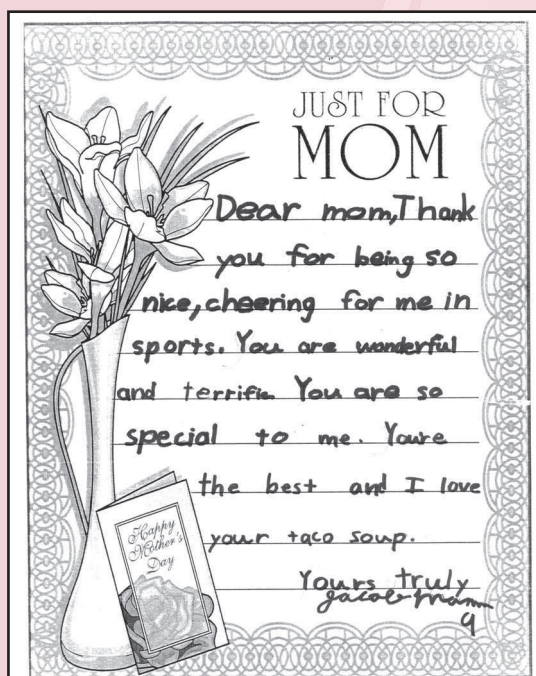 JUST FOR
MOM
Dear mom, Thank
you for being so
nice, cheering for me in
sports. You are wonderful
and terrific. You are so
special to me. Youre
the best and I love
your taco soup.
Yours truly
Jacob Mann
9
Happy
Mother's
Day